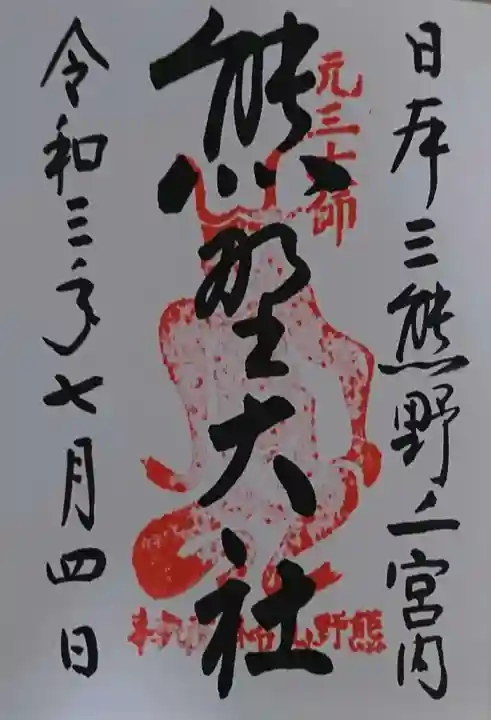 日本三熊野上宮内
元三大師
熊野大社
令和三年七月四日